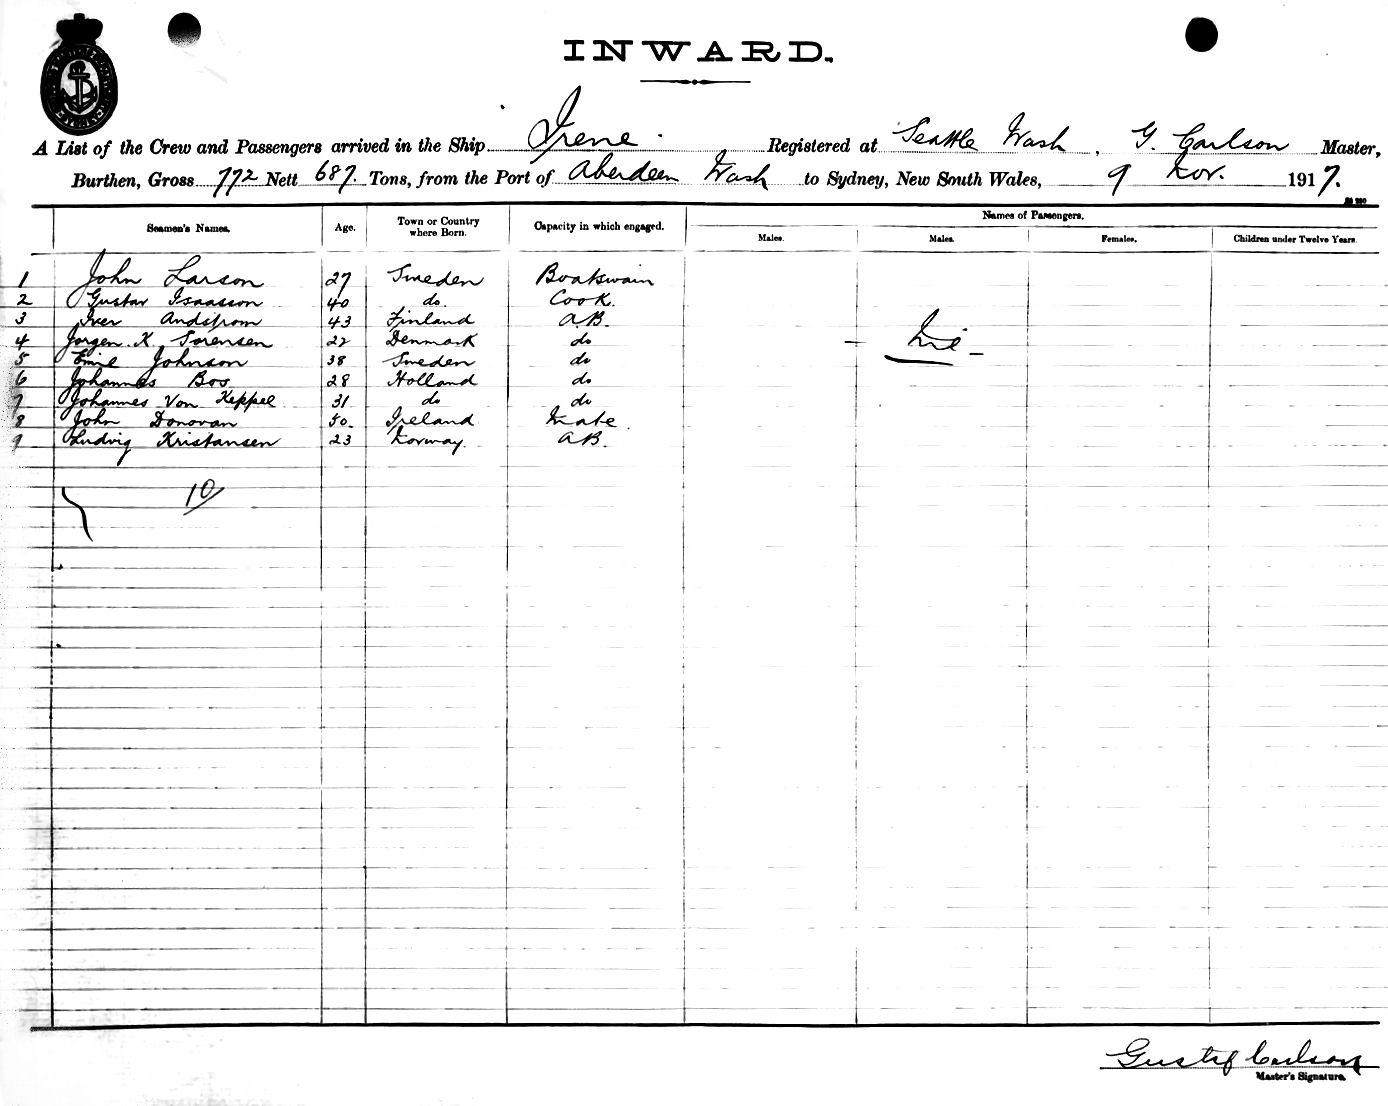 INWARD.
A List of the Crew and Passengers arrived in the Ship Irene Registered at Seattle Wash, G. Carlson Master,
Burthen, Gross 772 Nett 687 Tons, from the Port of Aberdeen Wash to Sydney, New South Wales, 9 Nov. 1917.
Names of Passengers.
Seamen's Names. Age. Town or Country where Born. Capacity in which engaged. Males. Males. Females. Children under Twelve Years.
1 John Larson 27 Sweden Boatswain
2 Gustav Isaasson 40 do. Cook.
3 Iver Andstrom 43 Finland A.B.
4 Jorgen. K. Sorensen 22 Denmark do
5 Emie Johnson 38 Sweden do
6 Johannes Bos 28 Holland do
7 Johannes Von Keppel 31 do do
8 John Donovan 50 Ireland Mate
9 Ludvig Kristansen 23 Norway. A.B.
- Nil -
10/
Gustaf Carlson
Master's Signature.